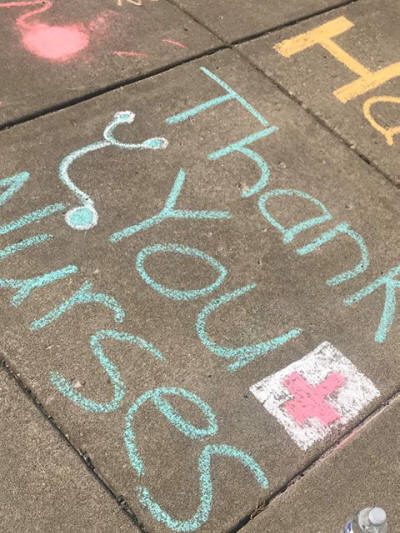 Thank
You
Nurses